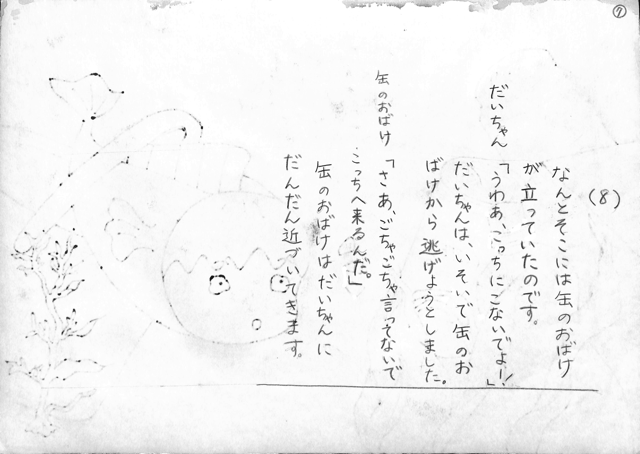 ⑦
(8)
なんとそこには缶のおばけ
が立っていたのです。
だいちゃん「うわあ、こっちにこないでよー!」
だいちゃんは、いそいで缶のお
ばけから逃げようとしました。
缶のおばけ「さあ、ごちゃごちゃ言ってないで
こっちへ来るんだ。」
缶のおばけはだいちゃんに
だんだん近づいてきます。